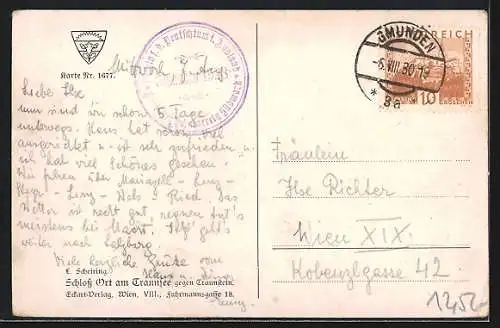 Karte Nr. 1677.
Mittwoch,
Liebe Ilse
nun sind wir schon 5 Tage
unterwegs. Hans hat
ausgerichtet u. ist sehr zufrieden u.
ich hab viel Schönes gesehen.
Wir fuhren über Mariazell - Lunz -
Steyr - Linz - Wels - Ried. Das
Wetter ist recht gut, regnen tut's
meistens bei Nacht. geht's
weiter nach Salzburg.
Viele herzliche Grüße von
Hans u.
L. Scheiring
Schloß Ort am Traunsee gegen Traunstein.
Eckart-Verlag, Wien, VIII., Fuhrmannsgasse 18.
GMUNDEN
-6.VIII.30
* 8a
REICH
10
GROSCHEN
Fräulein
Ilse Richter
Wien XIX
Kobenzlgasse 42